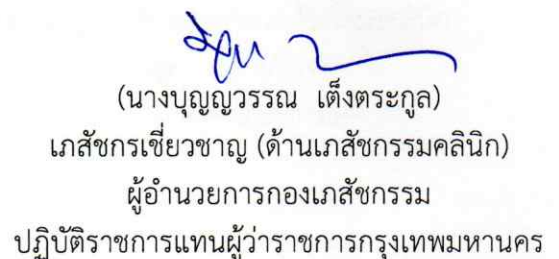 (นางบุญญวรรณ เต็งตระกูล)
เภสัชกรเชี่ยวชาญ (ด้านเภสัชกรรมคลินิก)
ผู้อำนวยการกองเภสัชกรรม
ปฏิบัติราชการแทนผู้ว่าราชการกรุงเทพมหานคร